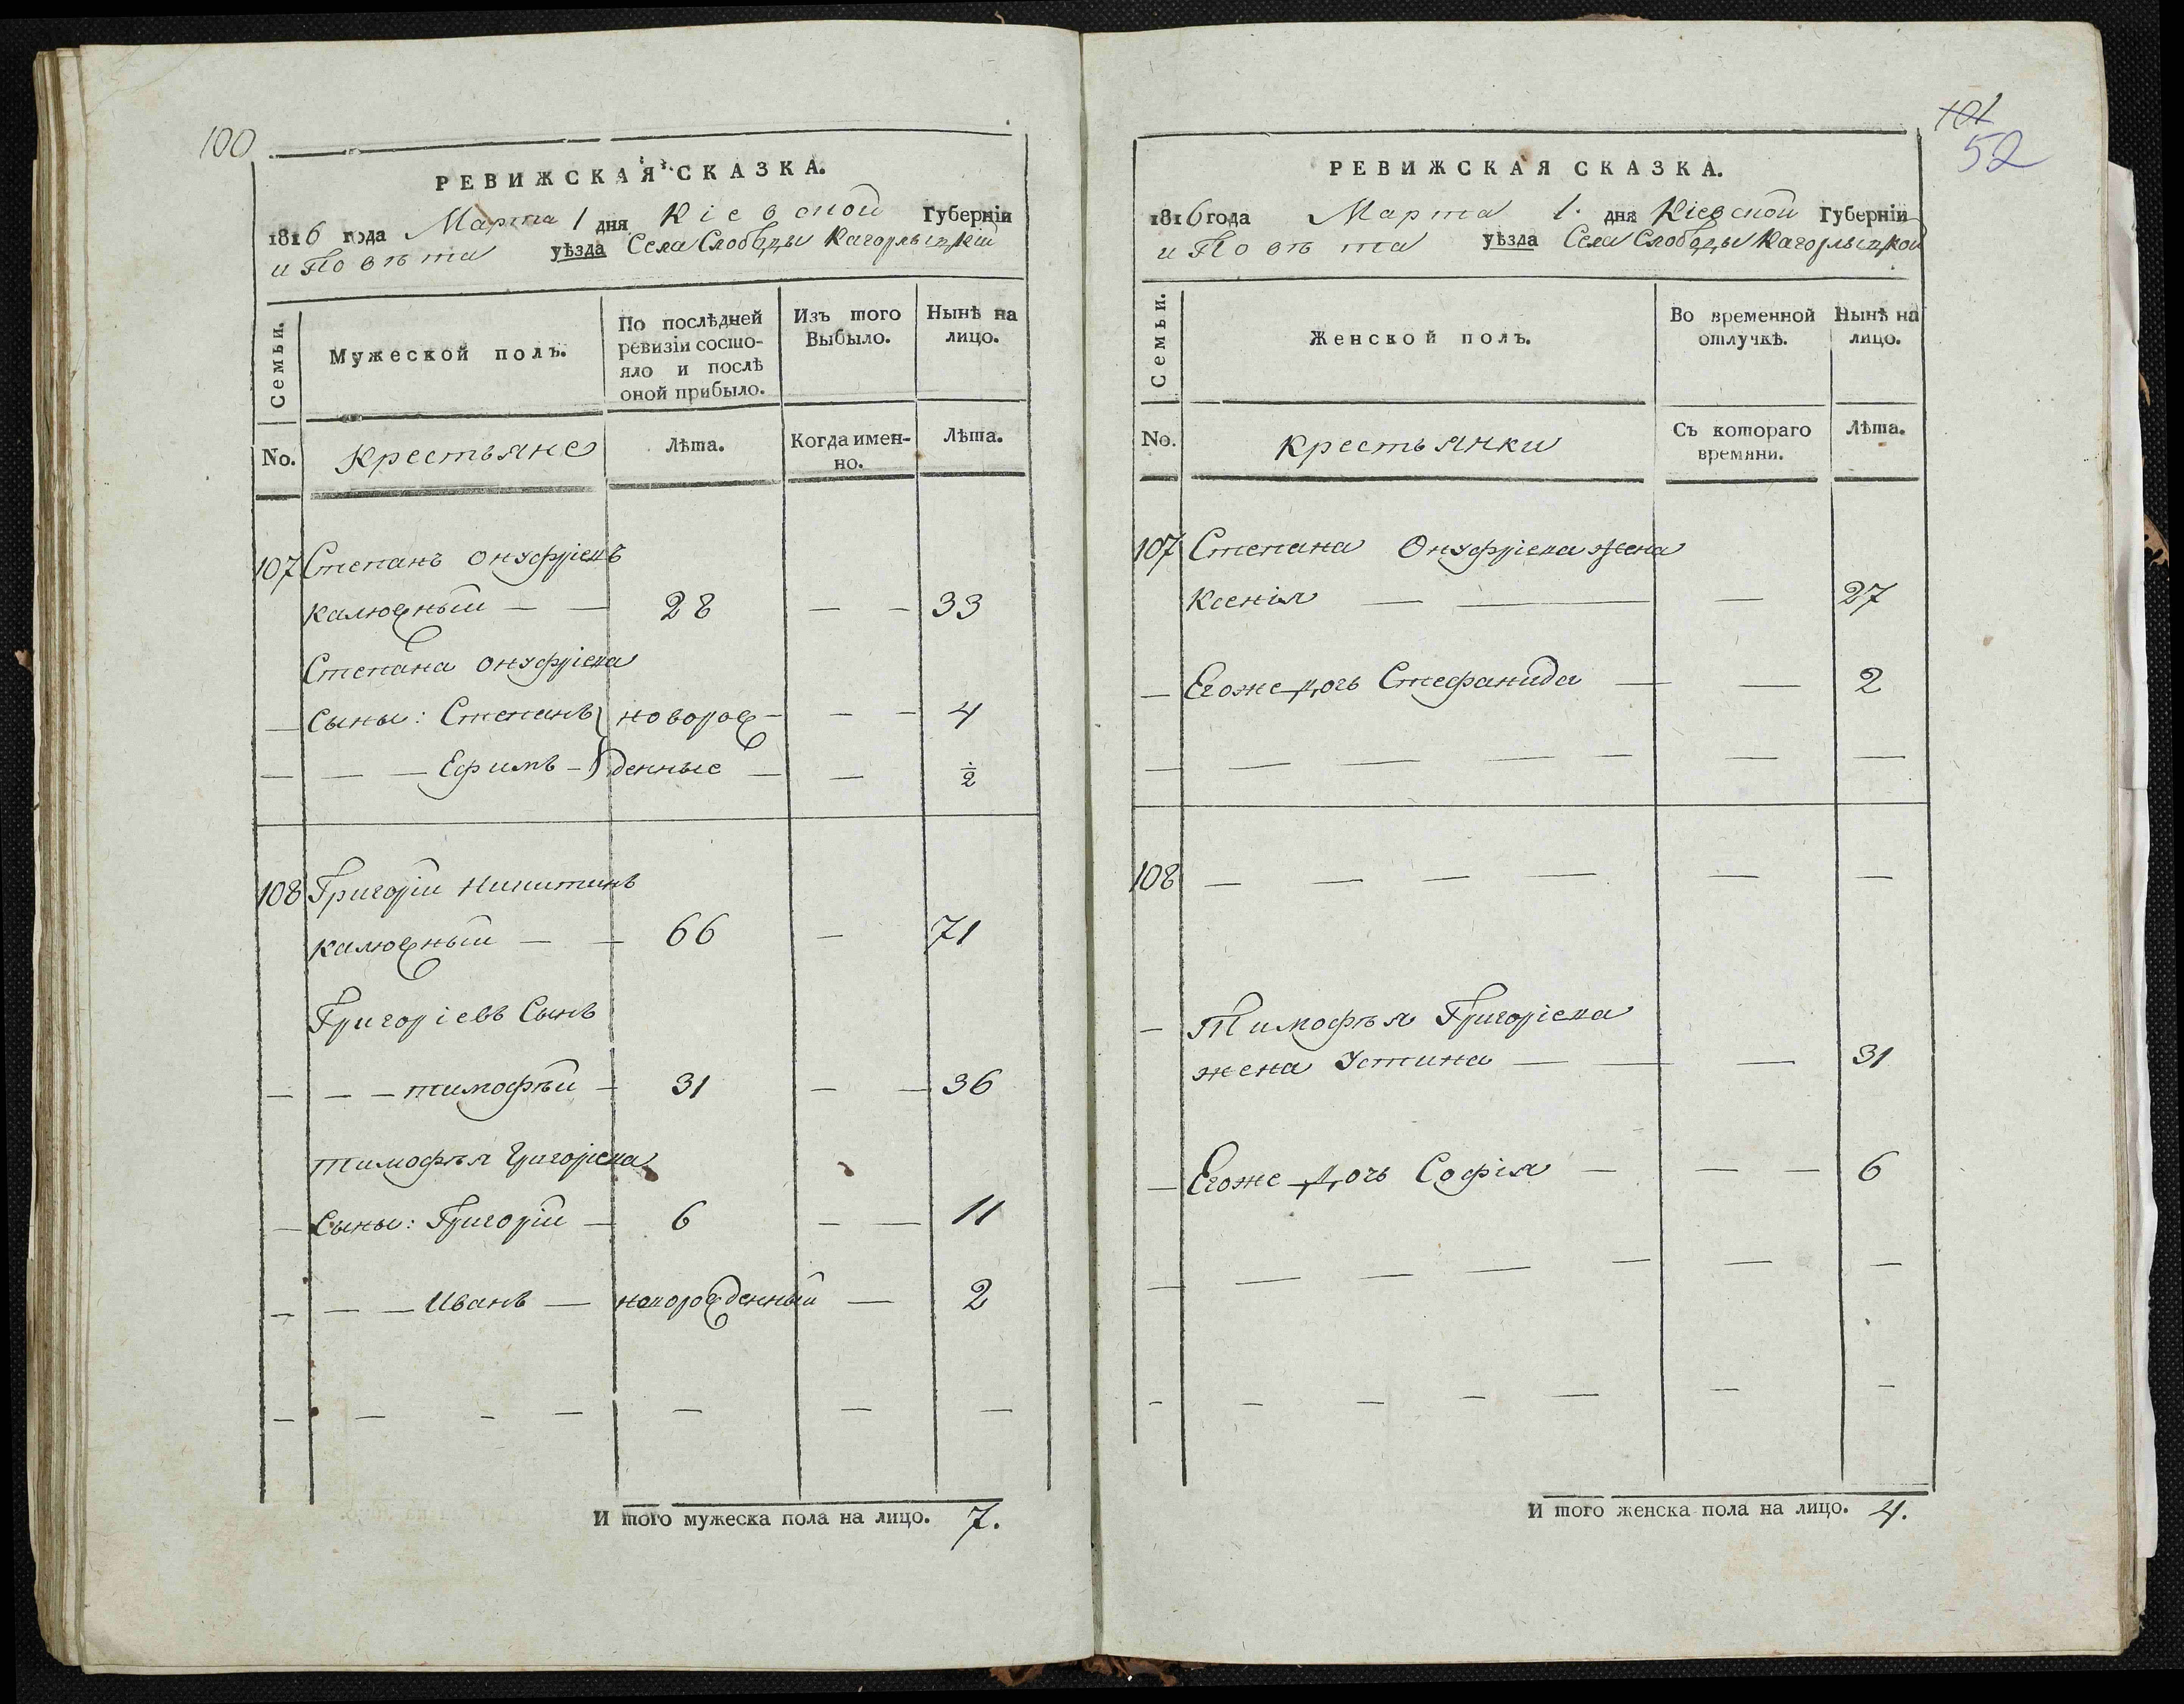 100
РЕВИЖСКАЯ СКАЗКА.
1816 года Марта 1 дня Кіевской Губерніи
и Повѣта уѣзда Села Слободы Кагорлыцкій
Семьи.
Мужеской полъ.
По послѣдней ревизіи состо-
яло и послѣ
оной прибыло.
Изъ того Выбыло.
Нынѣ на лицо.
No.
Крестьяне
Лѣта.
Когда имен-
но.
Лѣта.
107 Степанъ Онуфріевъ
Калюжный — — 28 — — 33
Степана Онуфріева
— Сыны: Степанъ новорож — — — 4
— — — Ефимъ — денные — — ½
108 Григорій Никитинъ
Калюжный — — 66 — 71
Григоріевъ Сынъ
— — — тимофѣй — 31 — — 36
тимофѣя Григоріева
— Сыны: Григорій — 6 — — 11
— — — Иванъ — новорожденный — 2
— — — — — — —
И того мужеска пола на лицо. 7.
101
52
РЕВИЖСКАЯ СКАЗКА.
1816 года Марта 1. дня Кіевской Губерніи
и Повѣта уѣзда Села Слободы Кагорлыцкой
Семьи.
Женской полъ.
Во временной
отлучкѣ.
Нынѣ на
лицо.
No.
Крестьянки
Съ котораго
времяни.
Лѣта.
107 Степана Онуфріева жена
Ксенія — — — 27
— Егоже дочь Стефанида — — 2
— — — — — — —
108 — — — — — —
— Тимофѣя Григоріева
жена Устина — — — 31
— Егоже дочь Софія — — — 6
— — — — — — —
— — — — — — —
И того женска пола на лицо. 4.